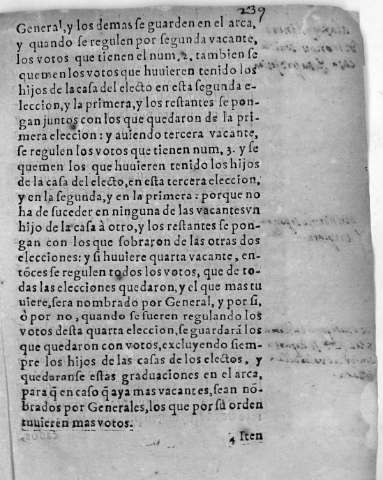 239
General, y los demas se guarden en el arca,
y quando se regulen por segunda vacante,
los votos que tienen el num. 2. tambien se
quemen los votos que huuieren tenido los
hijos de la casa del electo en esta segunda e-
leccion, y la primera, y los restantes se pon-
gan juntos con los que quedaron de la pri-
mera eleccion: y auiendo tercera vacante,
se regulen los votos que tienen num. 3. y se
quemen los que huuieren tenido los hijos
de la casa del electo, en esta tercera eleccion,
y en la segunda, y en la primera: porque no
ha de suceder en ninguna de las vacantes vn
hijo de la casa à otro, y los restantes se pon-
gan con los que sobraron de las otras dos
elecciones: y si huuiere quarta vacante, en-
tõces se regulen todos los votos, que de to-
das las elecciones quedaron, y el que mas tu
uiere, sera nombrado por General, y por si,
ò por no, quando se fueren regulando los
votos desta quarta eleccion, se guardarà los
que quedaron con votos, excluyendo siem-
pre los hijos de las casas de los electos, y
quedaranse estas graduaciones en el arca,
para q̃ en caso q̃ aya mas vacantes, sean nõ-
brados por Generales, los que por su orden
tuuieren mas votos.
Iten